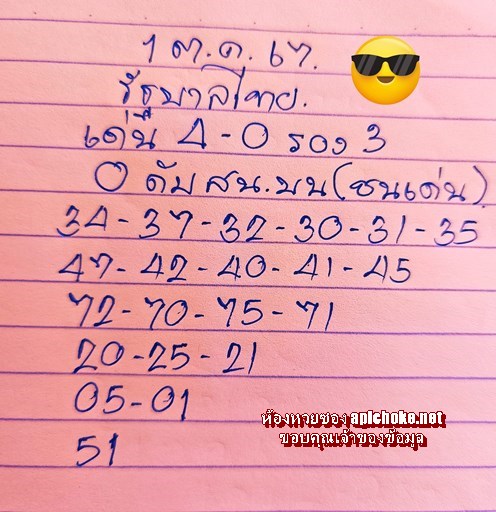 1 ต.ค. 67.
รัฐบาลไทย.
เด่น 4-0 รอง 3
0 ดับ สน.บน(ชนเด่น)
34-37-32-30-31-35
47-42-40-41-45
72-70-75-71
20-25-21
05-01
51
ห้องหวยซอง apichoke.net
ขอบคุณเจ้าของข้อมูล